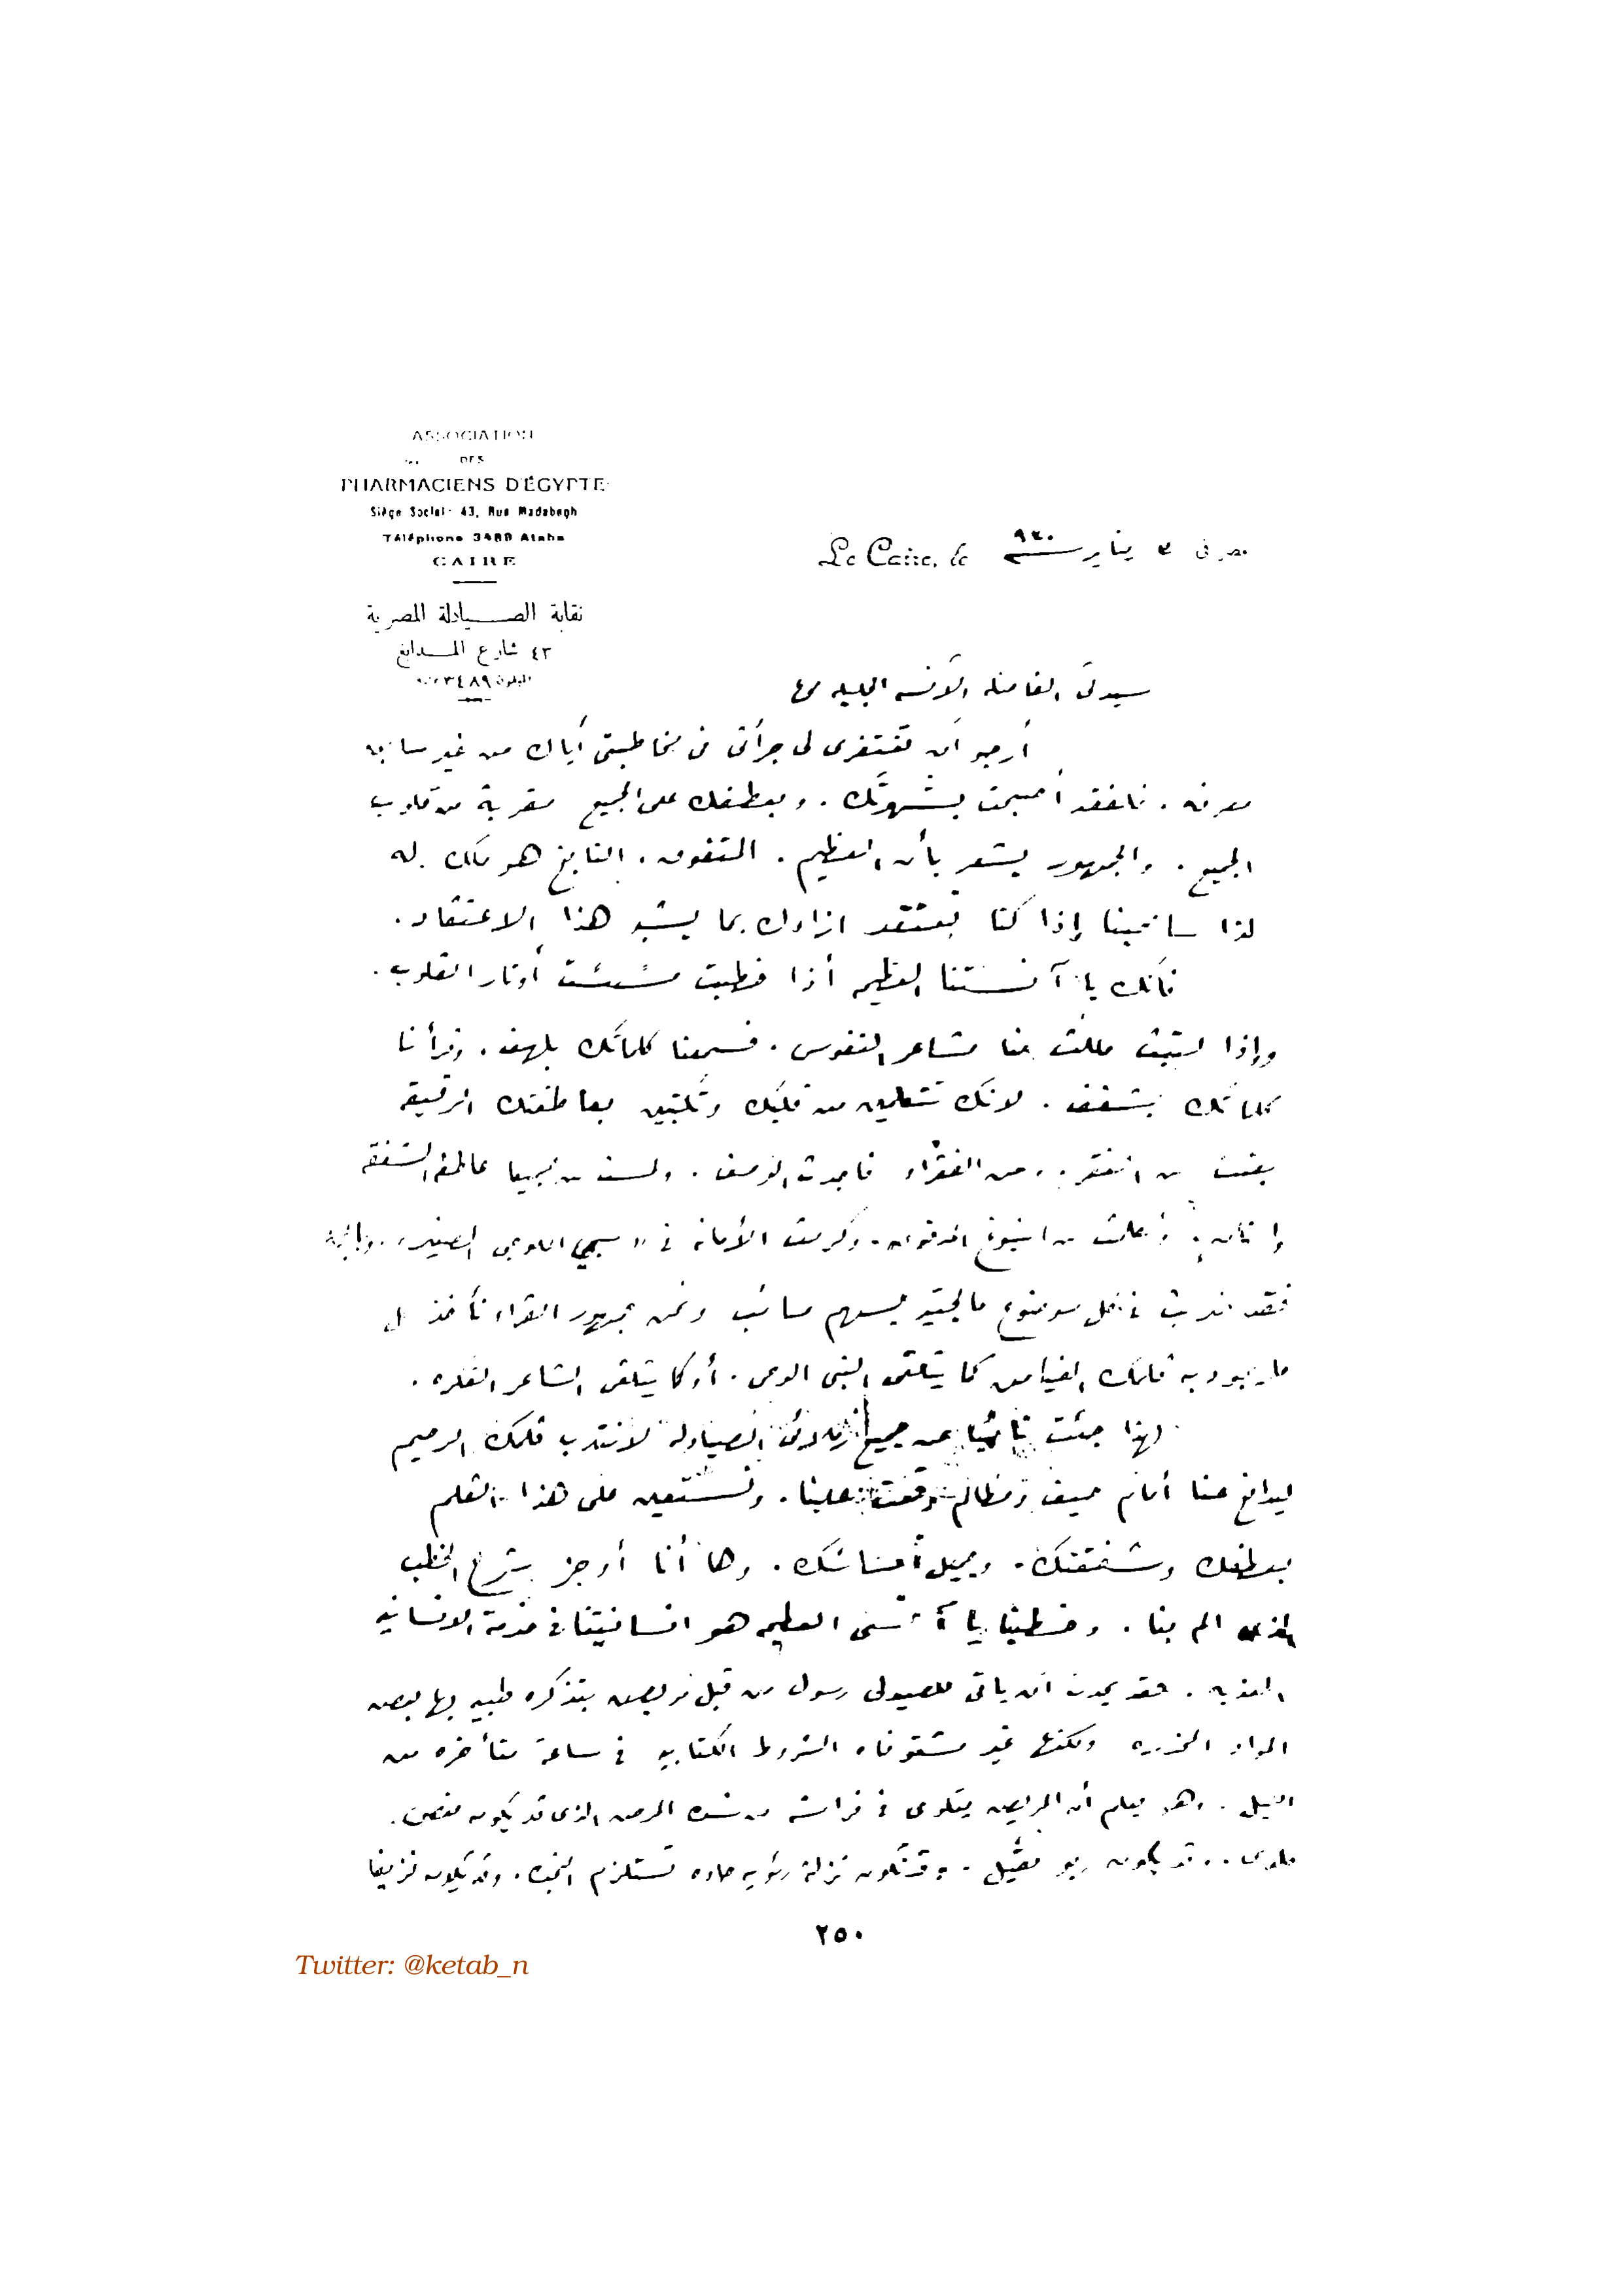 ASSOCIATION
DES
PHARMACIENS D'ÉGYPTE
Siège Social: 43, Rue Madabegh
Téléphone 3489 Ataba
CAIRE
نقابة الصيادلة المصرية
٤٣ شارع المدابغ
تليفون ٣٤٨٩ عتبه
مصر فى ٣ يناير سنة ٩٣٠
Le Caire, le
سيدتى الفاضله الآنسه الجليله مى
أرجو أن تغتفرى لى جرأتى فى مخاطبتى أياك من غير سابق
معرفه . فلقد أصبحت بشهرتك . وبعطفك على الجميع مقربة من قلوب
الجميع . والجمهور يشعر بأن العظيم . المتفوق . النابغ هو ملك له
لذا سامحينا إذا كنا نعتقد ازاءك بما يشبه هذا الاعتقاد .
فأنك يا آنستنا العظيمه أذا خطبت مسست أوتار القلوب .
وإذا كتبت ملكت منا مشاعر النفوس . فسمعنا كلماتك بلهف . وقرأنا
كلماتك بشغف . لانك تتكلمين من قلبك وتكتبين بعاطفتك الرقيقه
الفقر . وعن الفقراء فاجدت الوصف . ولمست
وكرمت الأمانه فى
فقد فى كل موضوع بسهم صائب ونحن جمهور القراء نأخذ
ما يجود به قلمك الفياض كما يتلقى النبى الوحى . أو كما يتلقى الشاعر الفكره .
لهذا جئت نائبا عن جميع زملائى الصيادلة لانتدب قلمك الرحيم
ليدافع عنا أمام حيف ومظالم وقعت علينا . ونستعين على هذا القلم
بعطفك وشفقتك . وجميل احساسك . وها أنا أوجز بشرح الخطب
الذى الم بنا . وخطيئتنا يا آنستى العظيمه هو انسانيتنا فى خدمة الانسانيه
المعذبه . فقد يحدث أن يأتى للصيدلى رسول من قبل مريض بتذكره طبيه بها بعض
المواد المخدره ولكنها غير مستوفاه الشروط الكتابيه فى ساعة متأخره من
الليل . وهو يعلم أن المريض يتلوى فى فراشه من شدة المرض الذى قد يكون مغص .
كلوى . . قد يكون ربو ثقيل . وقد تكون نزلة رئويه حاده تستلزم النجده . وقد يكون نزيفا
٢٥٠
Twitter: @ketab_n